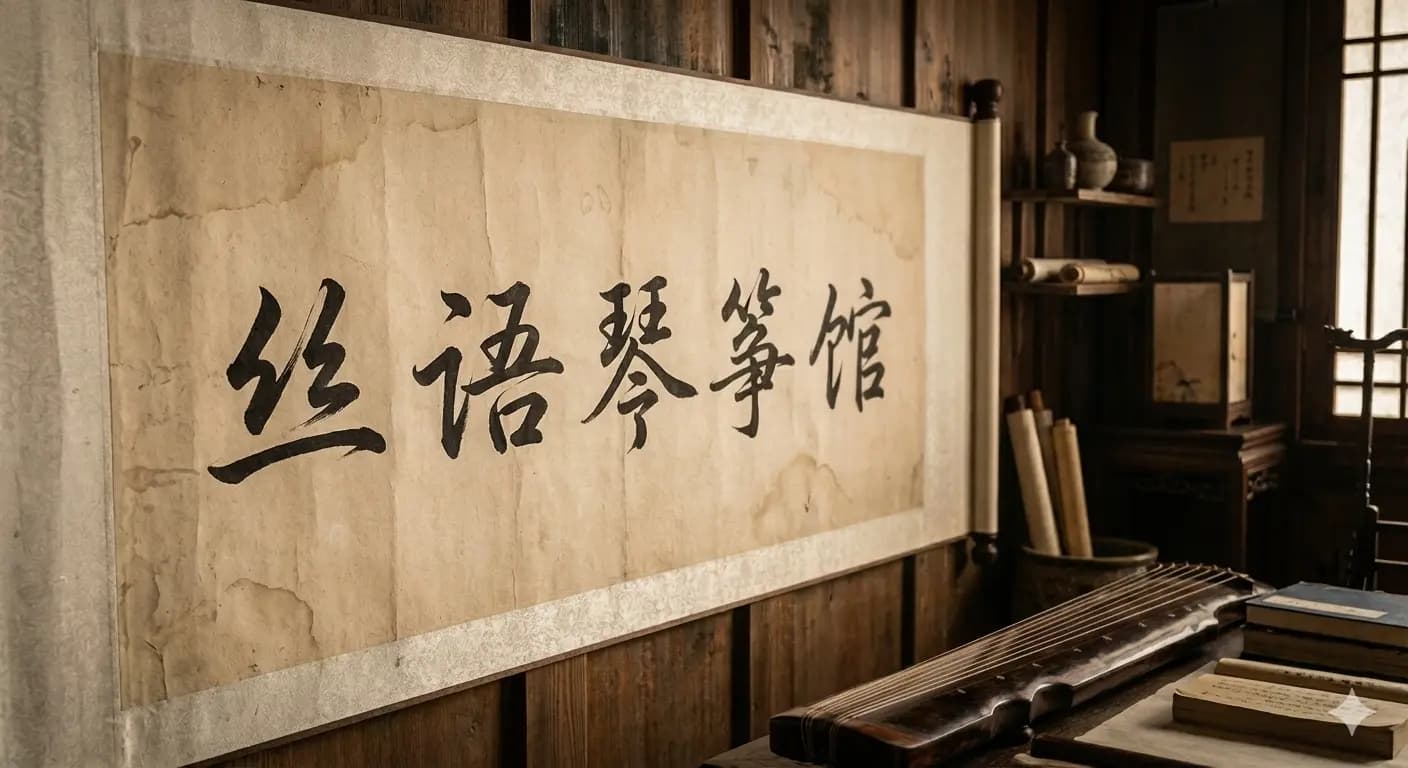 丝语琴筝馆